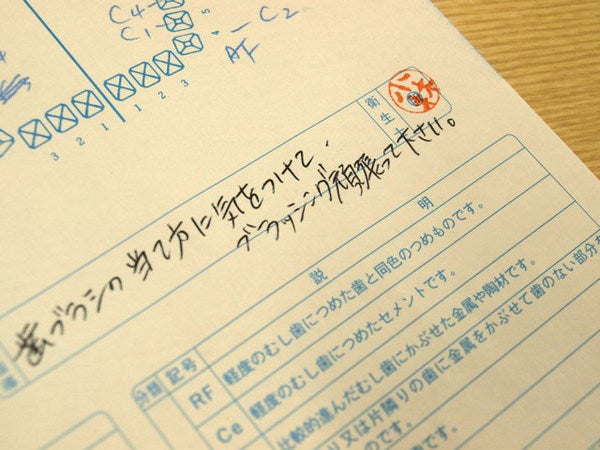 C4
C1
C2
AF
3 2 1 1 2 3
衛生士
歯ブラシの当て方に気をつけて、
ブラッシング頑張って下さい。
説明
分類 記号
RF 軽度のむし歯につめた歯と同色のつめものです。
Ce 軽度のむし歯につめたセメントです。
比較的進んだむし歯にかぶせた金属や陶材です。
り又は片隣りの歯に金属をかぶせて歯のない部分を
です。